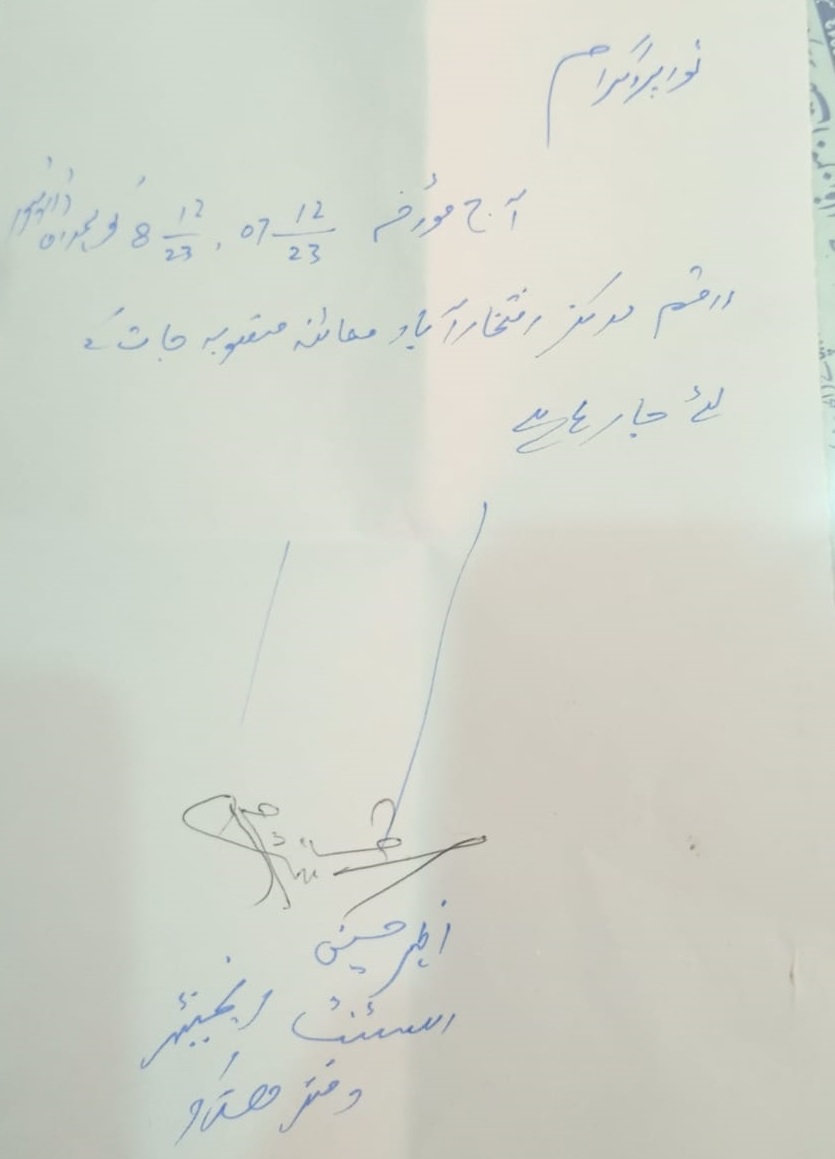 ٹور پروگرام
آج مورخہ 07 12/23 , 8 12/23 کو ہمراہ
راقم مرکز افتخارآباد معائنہ منصوبہ جات کے
لئے جا رہا ہے
اظہر حسین
اسسٹنٹ انجینئر
دفتر